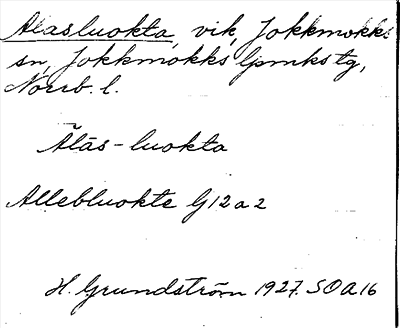 Alasluokta, vik, Jokkmokks
sn, Jokkmokks lpmkstg,
Norrb. l.
Ălās-luokta
Allebluokte G12a2
H. Grundström 1927. SOA16